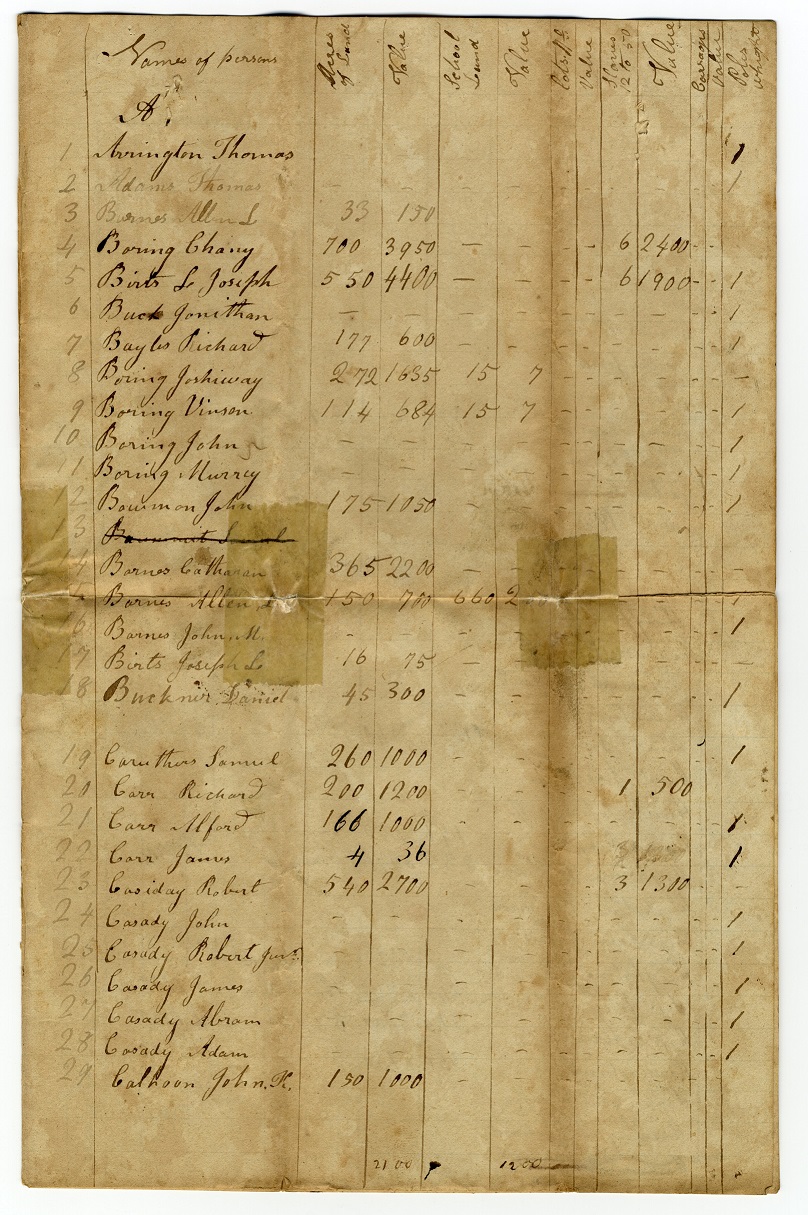 Names of persons Acres of Land Value School Land Value Lots Value Slaves 12 to 50 Value Carrages Value Poles Whight
A.
1 Arrington Thomas 1
2 Adams Thomas - - - - - - - - - 1
3 Barnes Allen L 33 150
4 Boring Chany 700 3950 - - - - 6 2400 - -
5 Birts L Joseph 550 4400 - - - - 6 1900 - - 1
6 Buck Jonithan - - - - - - - - - - 1
7 Bayles Richard 177 600 - - - - - - - - 1
8 Boring Joshiway 272 1635 15 7 - - - - - - -
9 Boring Vinson 114 684 15 7 - - - - - - 1
10 Boring John - - - - - - - - - - 1
11 Boring Murrey - - - - - - - - - - 1
12 Bowmon John 175 1050 - - - - - - - - 1
13
14 Barnes Catharan 365 2200 - - - - - - -
Barnes Allen L 150 700 660 2 - - - - 1
16 Barnes John M. - - - - - - - - 1
17 Birts Joseph L 16 75 - - - - - - -
18 Buckner Daniel 45 300 - - - - - - - - 1
19 Caruthers Samuel 260 1000 - - - - - - - - 1
20 Carr Richard 200 1200 - - - - 1 500 - -
21 Carr Alford 166 1000 - - - - - - - - 1
22 Carr James 4 36 - - - - - - 1
23 Casiday Robert 540 2700 - - - - 3 1300 - - -
24 Casady John - - - - - - - - - - 1
25 Casady Robert Junr. - - - - - - - - - - 1
26 Casady James - - - - - - - - - - 1
27 Casady Abram - - - - - - - - - - 1
28 Casady Adam - - - - - - - - - - 1
29 Calhoon John K. 150 1000 - - - - - - - - -
2100 1200